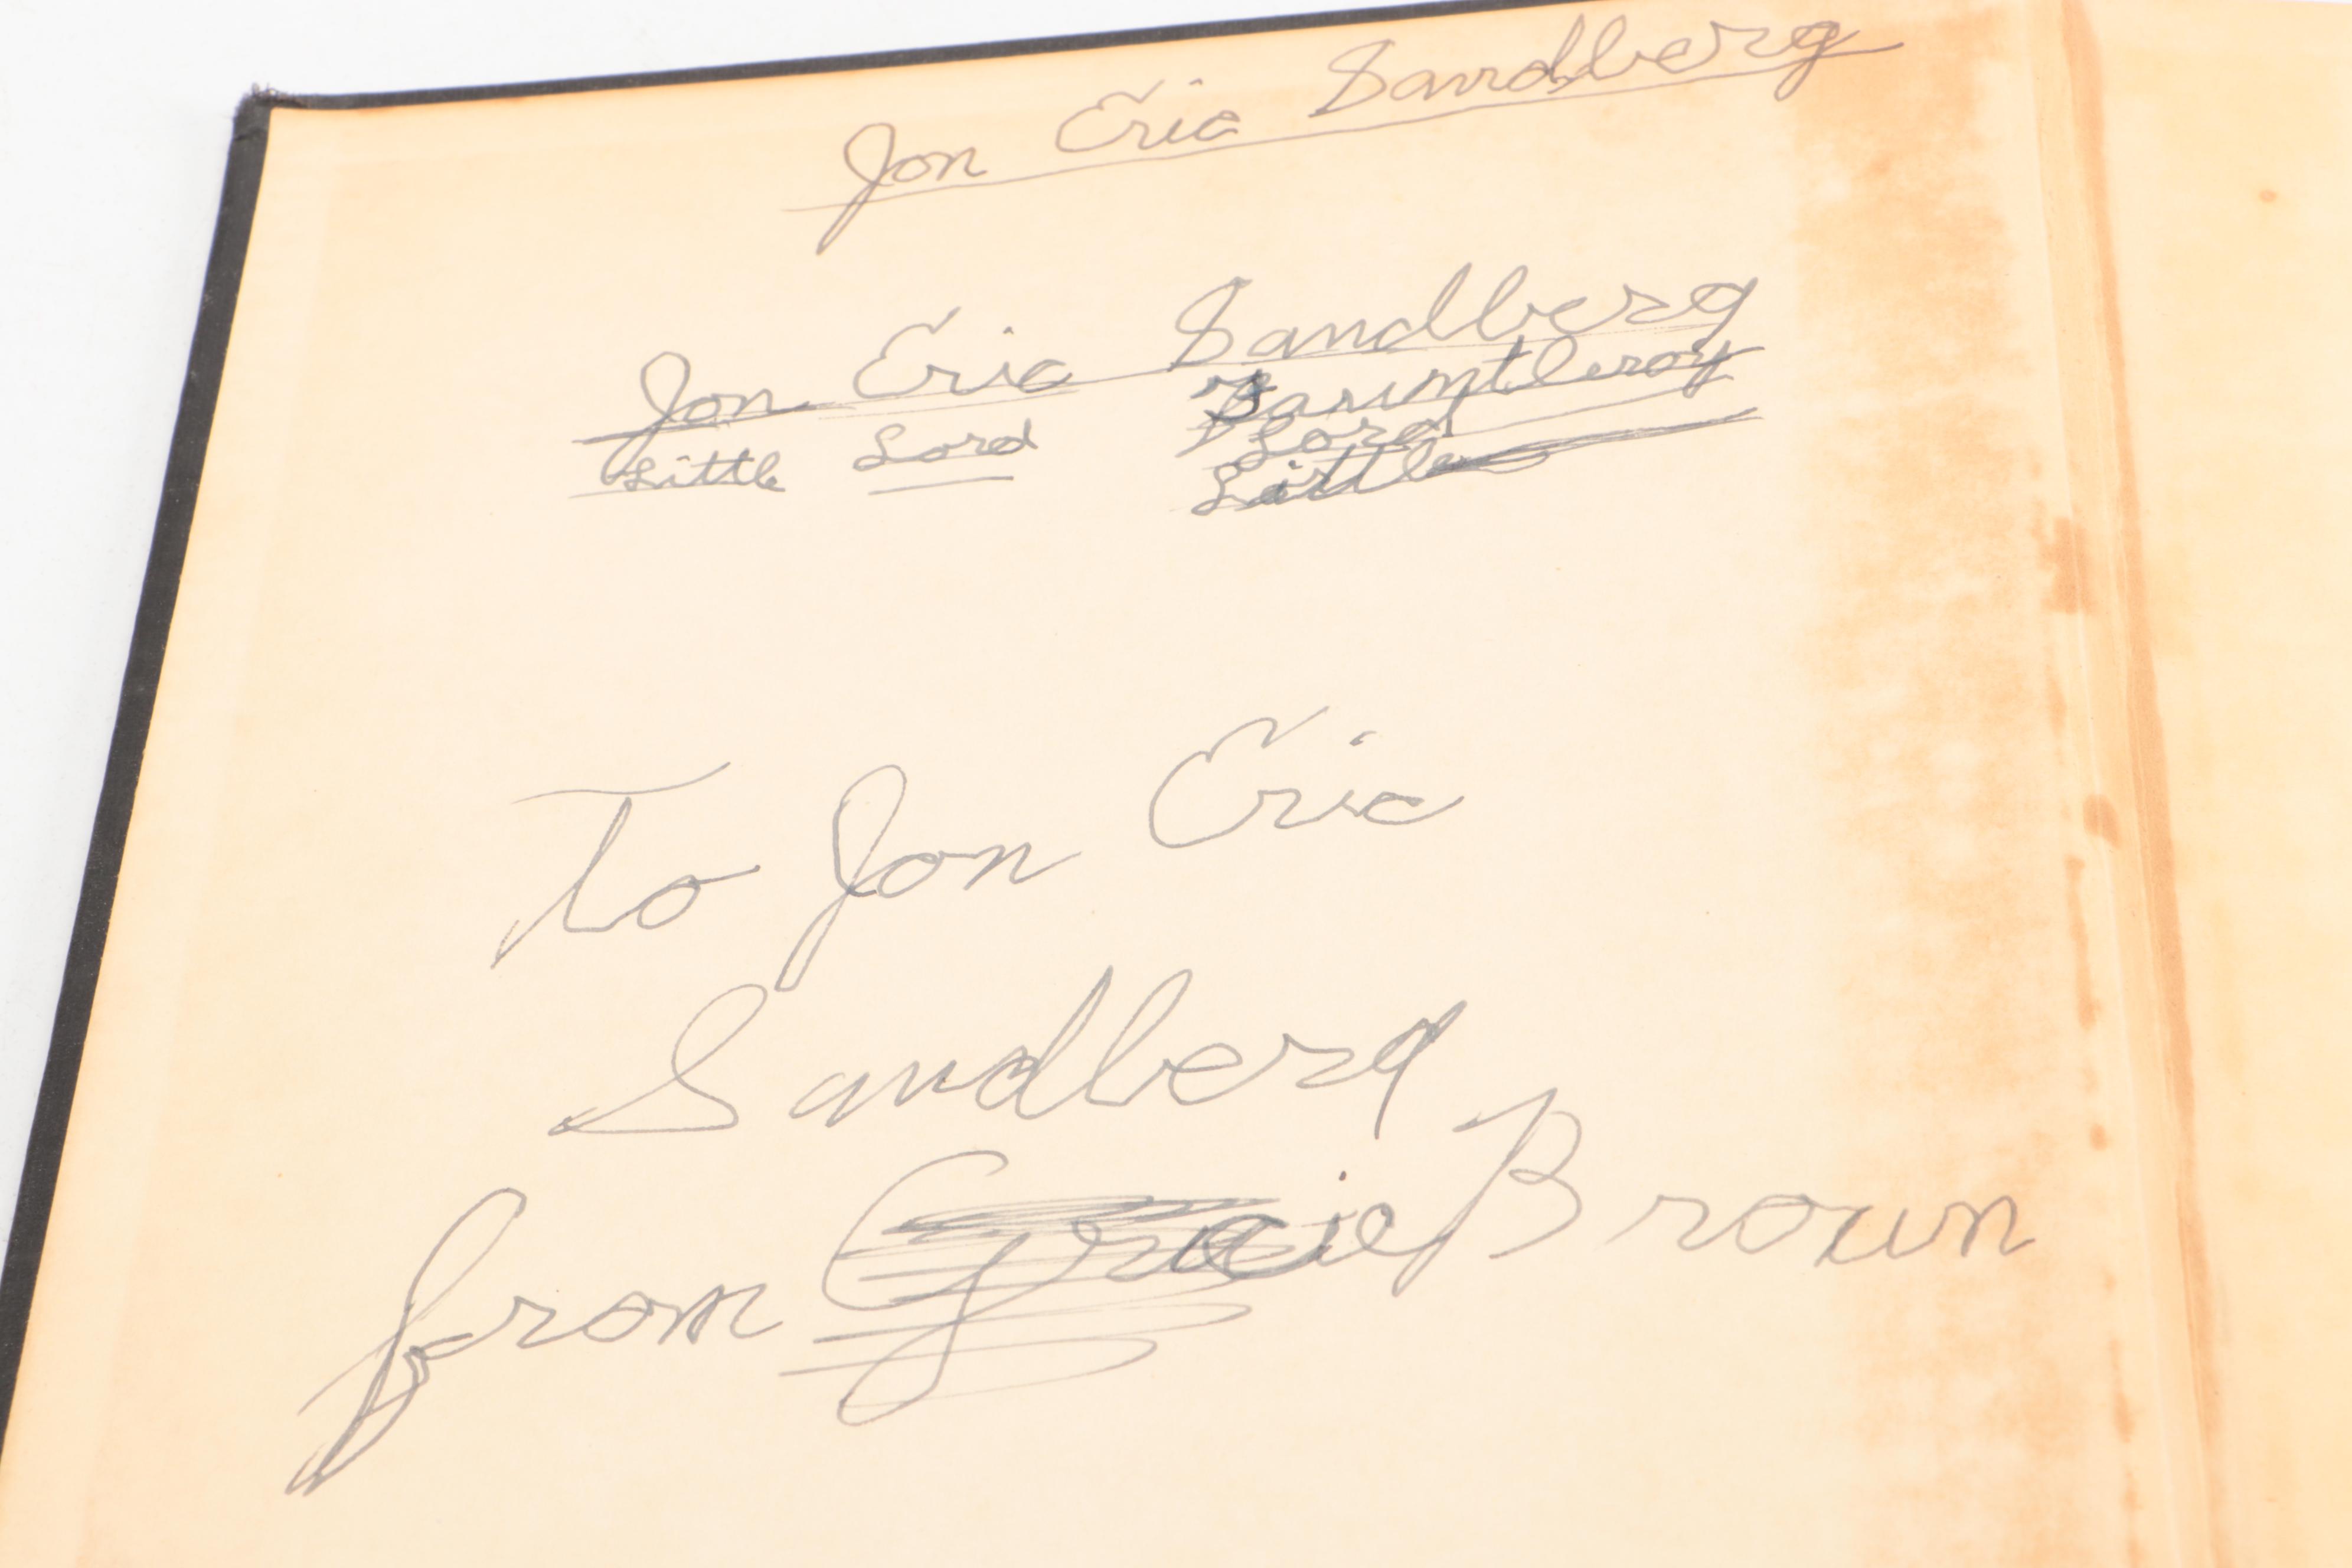 Jon Eric Sandberg
Jon Eric Sandberg
Fauntleroy
Little Lord Lord
Little
To Jon Eric
Sandberg
from Gracie Brown